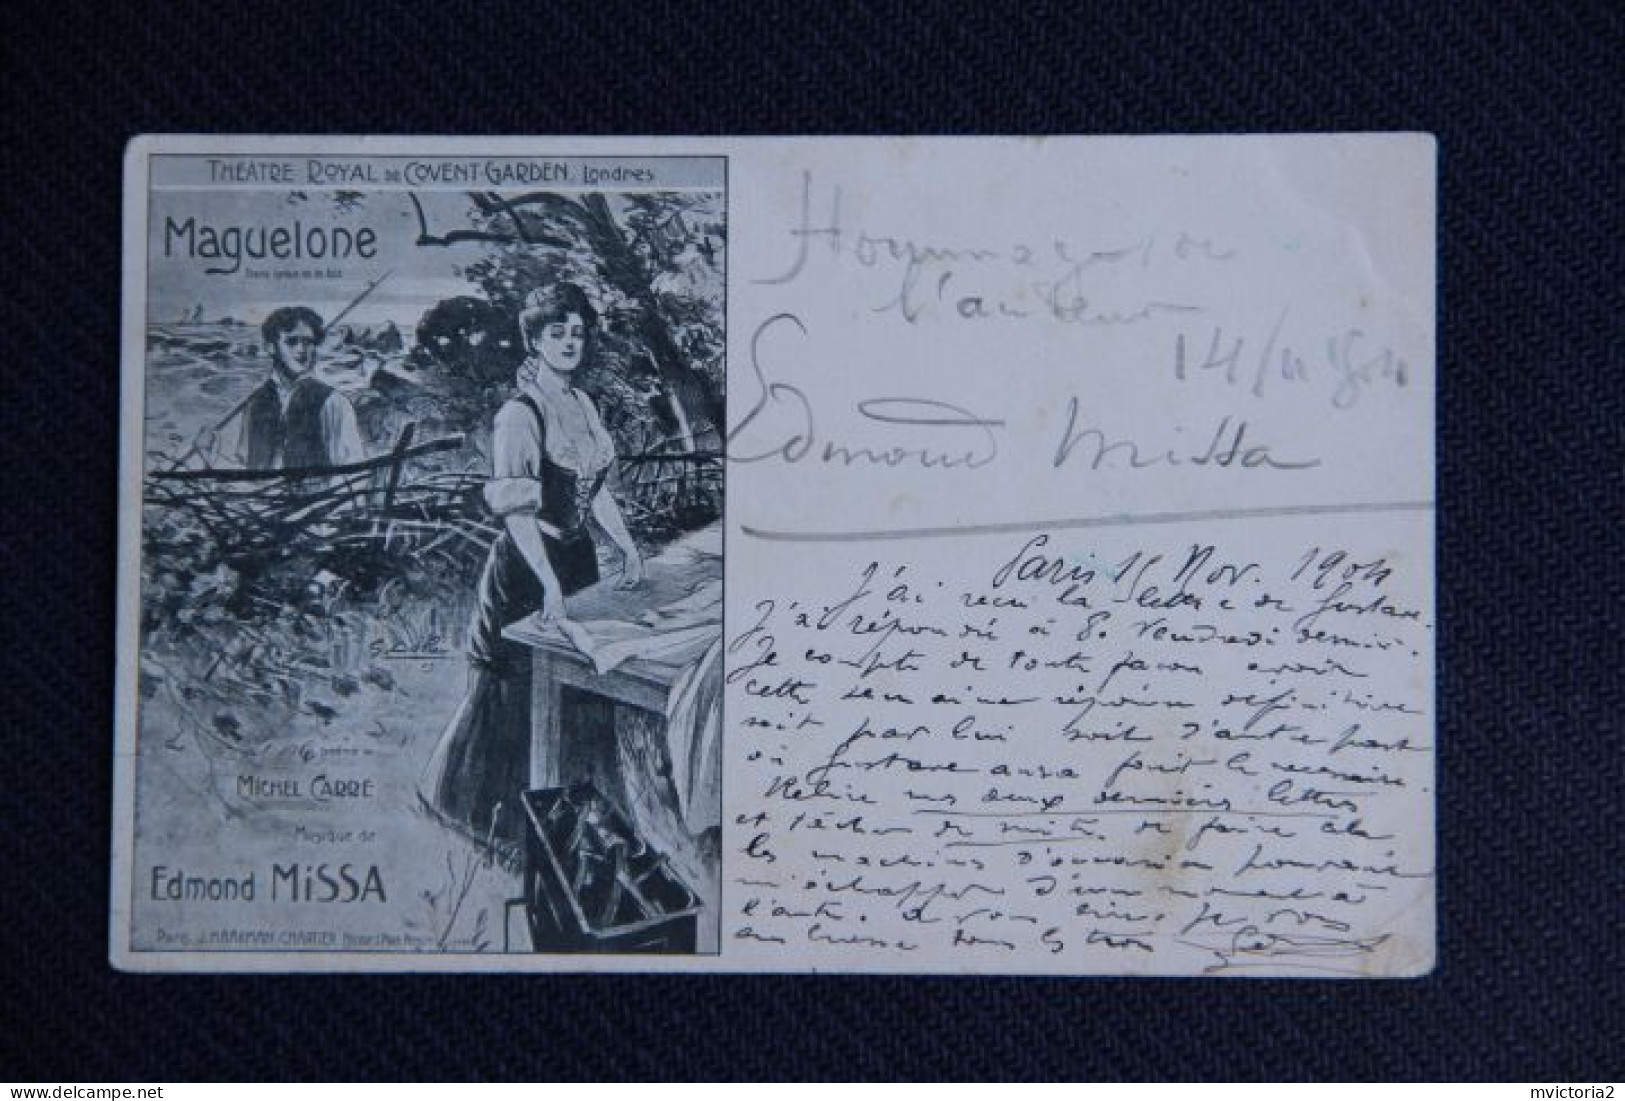 THÉATRE ROYAL DE COVENT-GARDEN, Londres
Maguelone
MICHEL CARRÉ
Musique de
Edmond MiSSA
Hommage de
l'auteur
14/11 1904
Edmond Missa
Paris 15 Nov. 1904
J'ai reçu la lettre de Gustave.
J'ai répondu à 8. Vendredi dernier.
Je compte de toute façon avoir
cette semaine réponse définitive
soit par lui soit d'autre part
où Gustave aura fait le nécessaire.
Relire mes deux dernières lettres
et tâcher de suite de faire
les machines d'occasion pouvant
m'échapper d'un moment à
l'autre. à vous lire. Je vous
embrasse tous les trois
mvictoria2